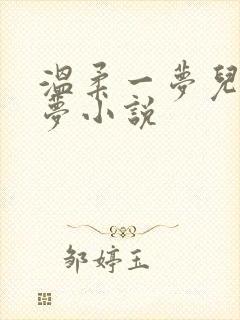 溫柔一夢兒
夢小說
邹婷玉